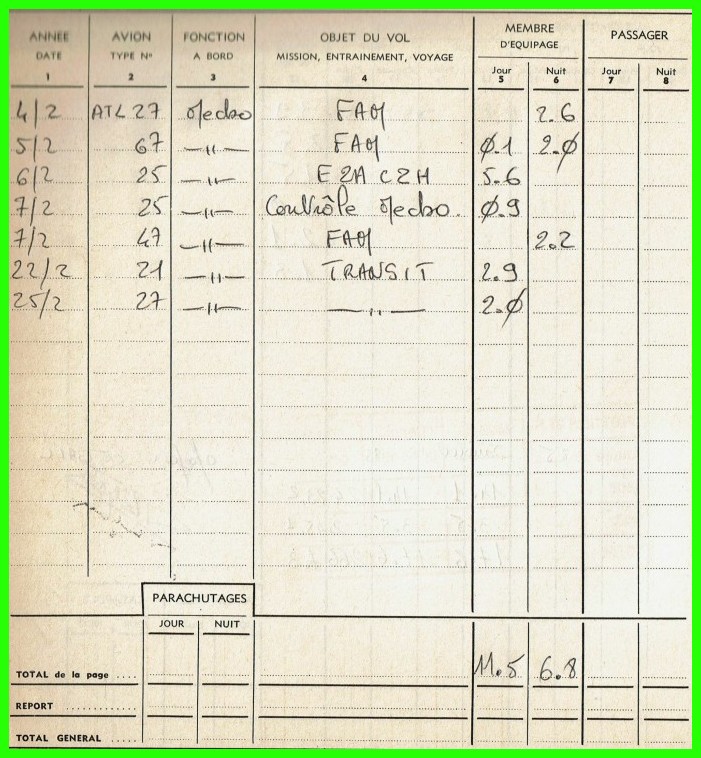 ANNÉE AVION FONCTION OBJET DU VOL MEMBRE D'EQUIPAGE PASSAGER
DATE TYPE N° A BORD MISSION, ENTRAINEMENT, VOYAGE Jour Nuit Jour Nuit
1 2 3 4 5 6 7 8
4/2 ATL 27 Mecbo FAM 2.6
5/2 67 —"— FAM Ø.1 2.Ø
6/2 25 —"— E2A C2H 5.6
7/2 25 —"— Contrôle Mecbo. Ø.9
7/2 47 —"— FAM 2.2
22/2 21 —"— TRANSIT 2.9
25/2 27 —"— —"— 2.Ø
PARACHUTAGES
JOUR NUIT
TOTAL de la page .... 11.5 6.8
REPORT ............
TOTAL GENERAL .....